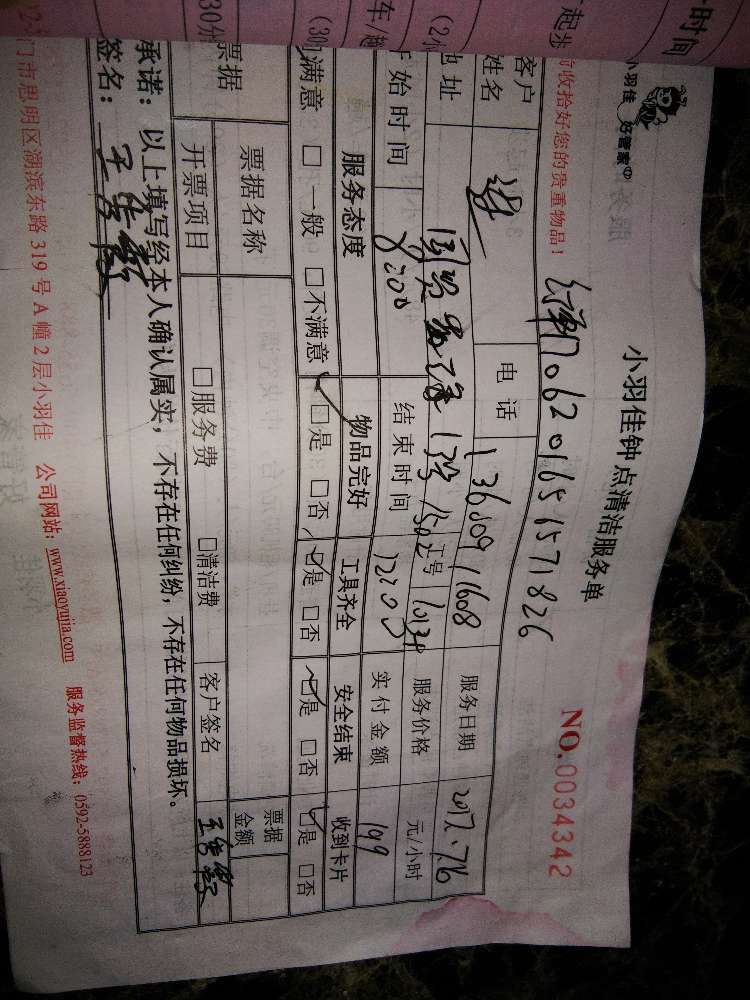 小羽佳 好管家
小羽佳钟点清洁服务单
NO.0034342
收拾好您的贵重物品！
706201651571826
客户
姓名
电话
13600911608
服务日期
2017.7.16
地址
1502
工号
服务价格
元/小时
开始时间
8:200
结束时间
12:200
实付金额
199
服务态度
物品完好
工具齐全
安全结束
收到卡片
满意 □一般 □不满意
□是 □否
□是 □否
□是 □否
□是 □否
票据
票据名称
票据
金额
开票项目
□服务费 □清洁费
客户签名
承诺：以上填写经本人确认属实，不存在任何纠纷，不存在任何物品损坏。
签名：
门市思明区湖滨东路 319 号 A 幢 2 层小羽佳 公司网站：www.xiaoyujia.com 服务监督热线：0592-5888123